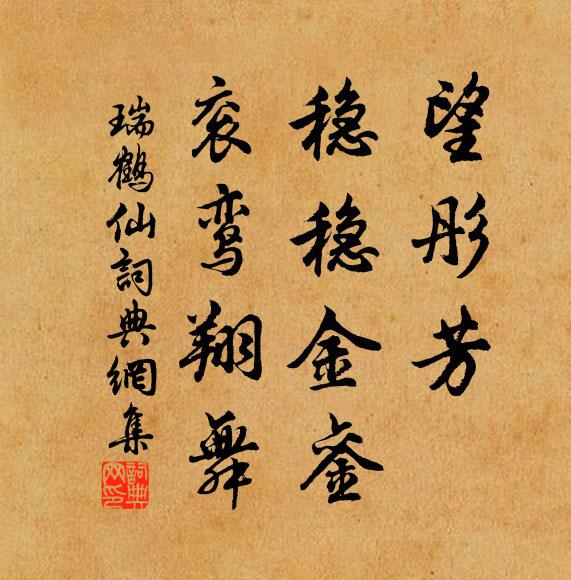 望彤芳
稳稳金
衮鸾翔舞
瑞鶴仙詞典網集
詞典
网印